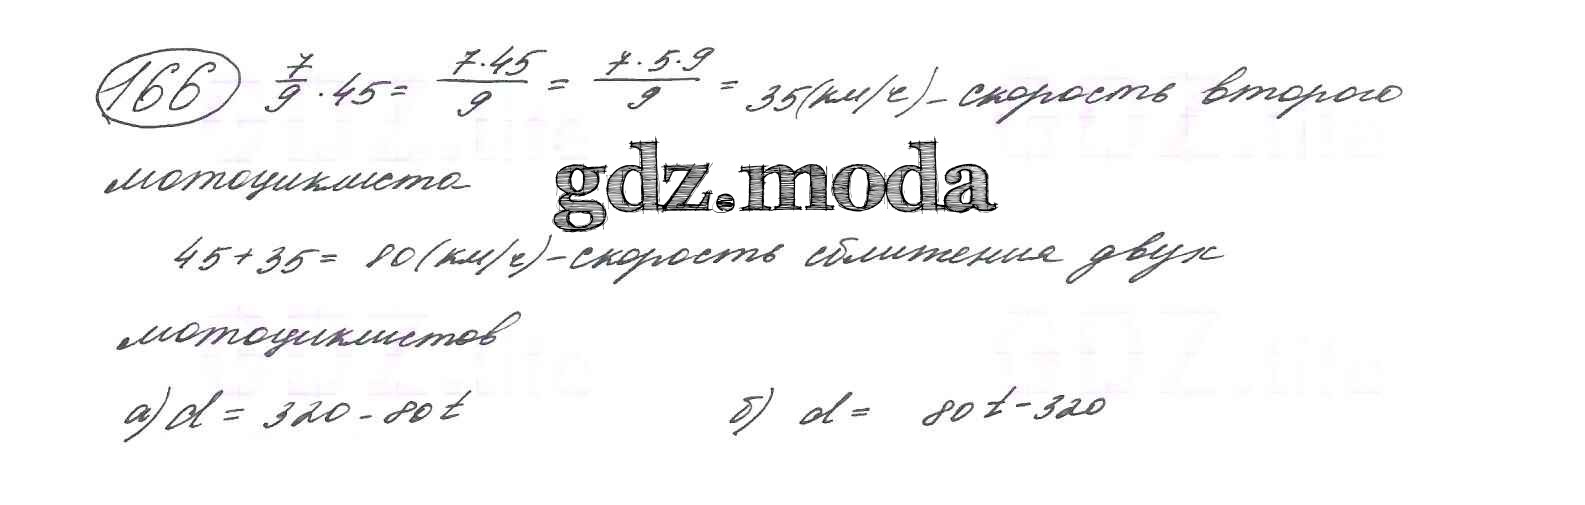 166 7/9 · 45 = 7·45/9 = 7·5·9/9 = 35(км/ч) – скорость второго
мотоциклиста
gdz.moda
45 + 35 = 80 (км/ч) – скорость сближения двух
мотоциклистов
а) d = 320 – 80t б) d = 80t – 320